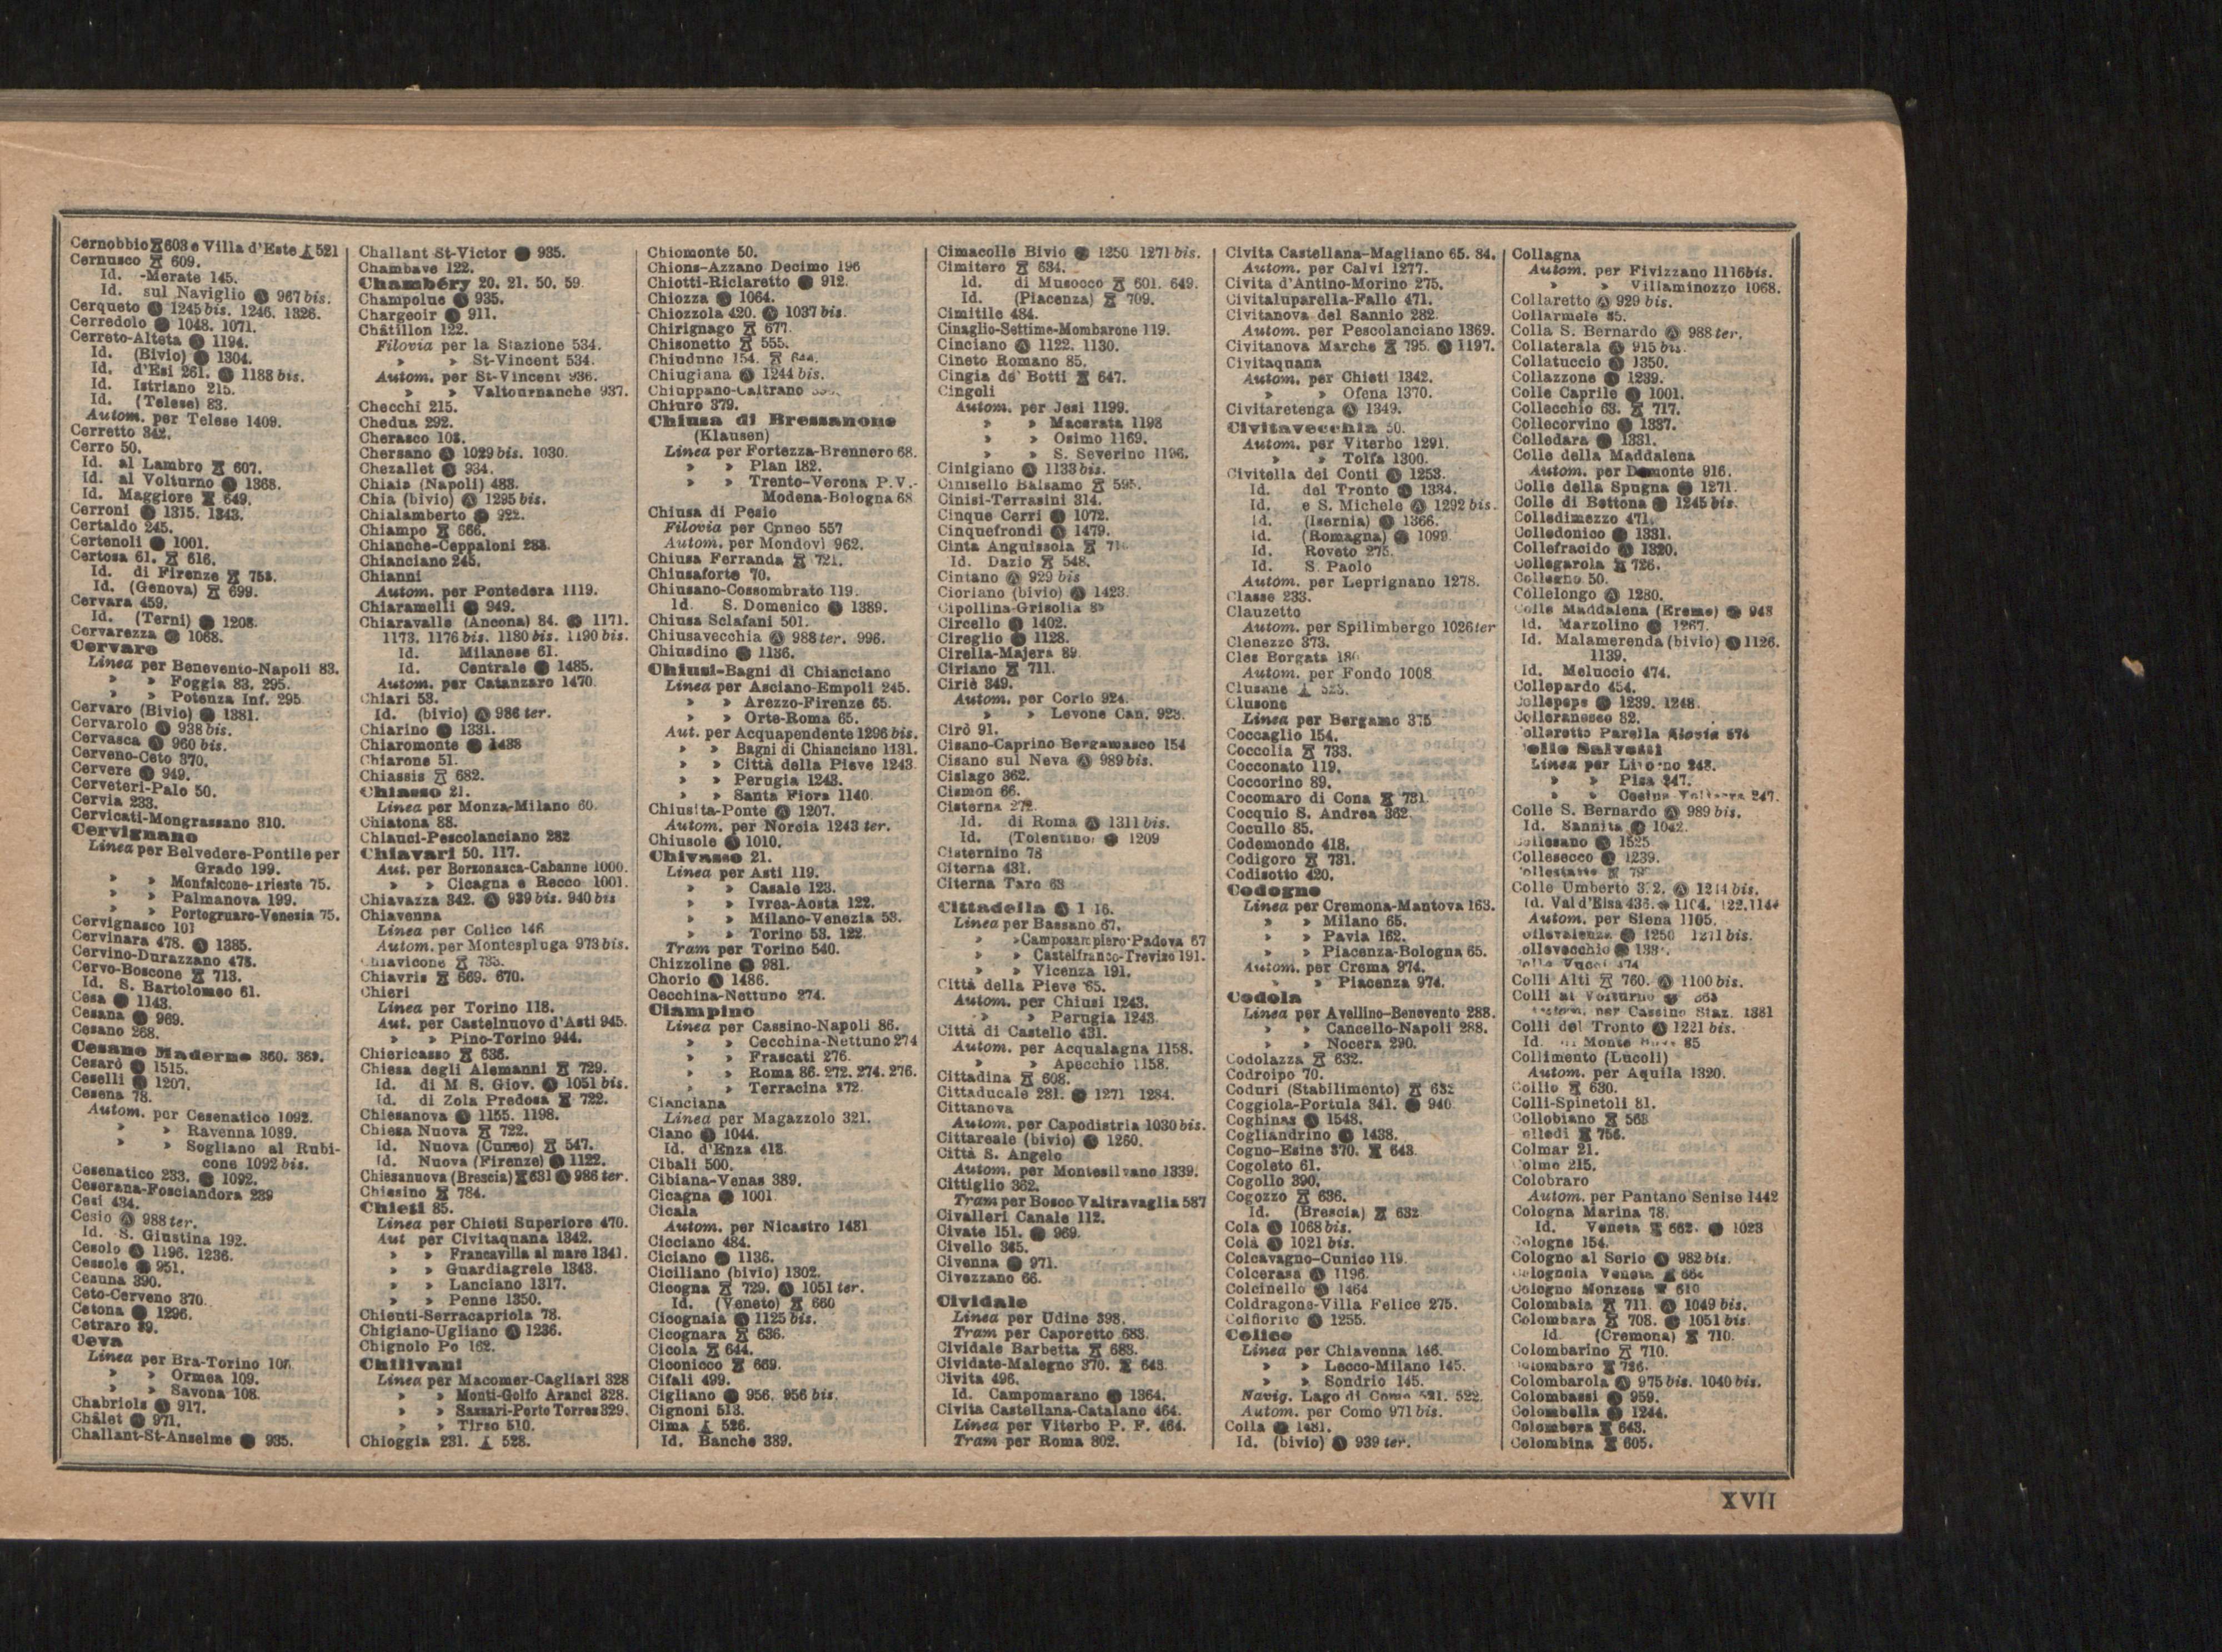 Cernobbio 603 e Villa d'Este 521
Cernusco 609.
Id. -Merate 145.
Id. sul Naviglio 967 bis.
Cerqueto 1245 bis. 1246. 1326.
Cerredolo 1048. 1071.
Cerreto-Alteta 1194.
Id. (Bivio) 1304.
Id. d'Esi 261. 1188 bis.
Id. Istriano 215.
Id. (Telese) 83.
Autom. per Telese 1409.
Cerretto 342.
Cerro 50.
Id. al Lambro 607.
Id. al Volturno 1368.
Id. Maggiore 649.
Cerroni 1315. 1343.
Certaldo 245.
Certenoli 1001.
Certosa 61. 616.
Id. di Firenze 753.
Id. (Genova) 699.
Cervara 459.
Id. (Terni) 1208.
Cervarezza 1068.
Cervaro
Linea per Benevento-Napoli 83.
» » Foggia 83. 295.
» » Potenza Inf. 295
Cervaro (Bivio) 1381.
Cervarolo 938 bis.
Cervasca 960 bis.
Cerveno-Ceto 370.
Cervere 949.
Cerveteri-Palo 50.
Cervia 233.
Cervicati-Mongrassano 310.
Cervignano
Linea per Belvedere-Pontile per
Grado 199.
» » Monfalcone-Trieste 75.
» » Palmanova 199.
» » Portogruaro-Venezia 75.
Cervignasco 101
Cervinara 478. 1385.
Cervino-Durazzano 478.
Cervo-Boscone 713.
Id. S. Bartolomeo 61.
Cesa 1143.
Cesana 969.
Cesano 268.
Cesano Maderno 360. 369.
Cesarò 1515.
Ceselli 1207.
Cesena 78.
Autom. per Cesenatico 1092.
» » Ravenna 1089.
» » Sogliano al Rubi-
cone 1092 bis.
Cesenatico 233. 1092.
Ceserana-Fosciandora 239
Cesi 434.
Cesio 988 ter.
Id. S. Giustina 192.
Cesolo 1196. 1236.
Cessole 951.
Cesuna 390.
Ceto-Cerveno 370.
Cetona 1296.
Cetraro 89.
Ceva
Linea per Bra-Torino
» » Ormea 109.
» » Savona 108.
Chabriols 917.
Châlet 971.
Challant-St-Anselme 935.
Challant St-Victor 935.
Chambave 122.
Chambéry 20. 21. 50. 59
Champoluc 935.
Chargeoir 911.
Châtillon 122.
Filovia per la Stazione 534.
» » St-Vincent 534.
Autom. per St-Vincent 936.
» » Valtournanche 937.
Checchi 215.
Chedua 292.
Cherasco 108.
Chersano 1029 bis. 1030.
Chezallet 934.
Chiaia (Napoli) 483.
Chia (bivio) 1295 bis.
Chialamberto 922.
Chiampo 666.
Chianche-Ceppaloni 283.
Chianciano 245.
Chianni
Autom. per Pontedera 1119.
Chiaramelli 949.
Chiaravalle (Ancona) 84. 1171.
1173. 1176 bis. 1180 bis. 1190 bis.
Id. Milanese 61.
Id. Centrale 1485.
Autom. per Catanzaro 1470.
Chiari 53.
Id. (bivio) 986 ter.
Chiarino 1331.
Chiaromonte 1438
Chiarone 51.
Chiassis 682.
Chiasso 21.
Linea per Monza-Milano 60.
Chiatona 88.
Chiauci-Pescolanciano 282
Chiavari 50. 117.
Aut. per Borzonasca-Cabanne 1000.
» » Cicagna e Recco 1001.
Chiavazza 342. 939 bis. 940 bis
Chiavenna
Linea per Colico 146
Autom. per Montespluga 973 bis.
Chiavicone 733.
Chiavris 669. 670.
Chieri
Linea per Torino 118.
Aut. per Castelnuovo d'Asti 945.
» » Pino-Torino 944.
Chiericasso 636.
Chiesa degli Alemanni 729.
Id. di M S. Giov. 1051 bis.
Id. di Zola Predosa 722.
Chiesanova 1155. 1198.
Chiesa Nuova 722.
Id. Nuova (Cuneo) 547.
Id. Nuova (Firenze) 1122.
Chiesanuova (Brescia) 631 986 ter.
Chiesino 784.
Chieti 85.
Linea per Chieti Superiore 470.
Aut per Civitaquana 1342.
» » Francavilla al mare 1341.
» » Guardiagrele 1343.
» » Lanciano 1317.
» » Penne 1350.
Chieuti-Serracapriola 78.
Chigiano-Ugliano 1236.
Chignolo Po 162.
Chilivani
Linea per Macomer-Cagliari 328
» » Monti-Golfo Aranci 328.
» » Sassari-Porto Torres 329.
» » Tirso 510.
Chioggia 231. 528.
Chiomonte 50.
Chions-Azzano Decimo 196
Chiotti-Riclaretto 912.
Chiozza 1064.
Chiozzola 420. 1037 bis.
Chirignago 677.
Chisonetto 555.
Chiuduno 154.
Chiugiana 1244 bis.
Chiuppano-Caltrano
Chiuro 379.
Chiusa di Bressanone
(Klausen)
Linea per Fortezza-Brennero 68.
» » Plan 182.
» » Trento-Verona P.V.-
Modena-Bologna 68
Chiusa di Pesio
Filovia per Cuneo 557
Autom. per Mondovì 962.
Chiusa Ferranda 721.
Chiusaforte 70.
Chiusano-Cossombrato 119.
Id. S. Domenico 1389.
Chiusa Sclafani 501.
Chiusavecchia 988 ter. 996.
Chiusdino 1136.
Chiusi-Bagni di Chianciano
Linea per Asciano-Empoli 245.
» » Arezzo-Firenze 65.
» » Orte-Roma 65.
Aut. per Acquapendente 1296 bis.
» » Bagni di Chianciano 1131.
» » Città della Pieve 1243
» » Perugia 1243.
» » Santa Fiora 1140
Chiusita-Ponte 1207.
Autom. per Norcia 1243 ter.
Chiusole 1010.
Chivasso 21.
Linea per Asti 119.
» » Casale 123.
» » Ivrea-Aosta 122.
» » Milano-Venezia 53.
» » Torino 53. 122
Tram per Torino 540.
Chizzoline 981.
Chorio 1486.
Cecchina-Nettuno 274.
Ciampino
Linea per Cassino-Napoli 86.
» » Cecchina-Nettuno 274
» » Frascati 276.
» » Roma 86. 272. 274. 276.
» » Terracina 272.
Cianciana
Linea per Magazzolo 321.
Ciano 1044.
Id. d'Enza 418
Cibali 500.
Cibiana-Venas 389.
Cicagna 1001
Cicala
Autom. per Nicastro 1481
Cicciano 484.
Ciciano 1136.
Ciciliano (bivio) 1302.
Cicogna 729. 1051 ter.
Id. (Veneto) 660
Cicognaia 1125 bis.
Cicognara 636.
Cicola 644.
Ciconicco 669.
Cifali 499.
Cigliano 956. 956 bis.
Cignoni 513.
Cima 526.
Id. Banche 389.
Cimacolle Bivio 1250 1271 bis.
Cimitero 634.
Id. di Musocco 601. 649.
Id. (Piacenza) 709.
Cimitile 484.
Cinaglio-Settime-Mombarone 119.
Cinciano 1122. 1130.
Cineto Romano 85.
Cingia de' Botti 647.
Cingoli
Autom. per Jesi 1199.
» » Macerata 1198
» » Osimo 1169.
» » S. Severino 1196.
Cinigiano 1133 bis.
Cinisello Balsamo 595.
Cinisi-Terrasini 314.
Cinque Cerri 1072.
Cinquefrondi 1479.
Cinta Anguissola
Id. Dazio 548.
Cintano 929 bis
Cioriano (bivio) 1423.
Cipollina-Grisolia
Circello 1402.
Cireglio 1128.
Cirella-Majera 89
Ciriano 711.
Ciriè 349.
Autom. per Corio 924.
» » Levone Can. 923.
Cirò 91.
Cisano-Caprino Bergamasco 154
Cisano sul Neva 989 bis.
Cislago 362.
Cismon 66.
Cisterna 272.
Id. di Roma 1311 bis.
Id. (Tolentino) 1209
Cisternino 78
Citerna 431.
Citerna Taro 63
Cittadella 1 16.
Linea per Bassano 67.
» » Camposampiero-Padova 67
» » Castelfranco-Treviso 191.
» » Vicenza 191.
Città della Pieve 65.
Autom. per Chiusi 1243.
» » Perugia 1243
Città di Castello 431.
Autom. per Acqualagna 1158.
» » Apecchio 1158.
Cittadina 608.
Cittaducale 281. 1271 1284.
Cittanova
Autom. per Capodistria 1030 bis.
Cittareale (bivio) 1260.
Città S. Angelo
Autom. per Montesilvano 1339.
Cittiglio 362.
Tram per Bosco Valtravaglia 587
Civalleri Canale 112.
Civate 151. 969.
Civello 365.
Civenna 971.
Civezzano 66.
Cividale
Linea per Udine 398.
Tram per Caporetto 683.
Cividale Barbetta 683.
Cividate-Malegno 370. 643.
Civita 496.
Id. Campomarano 1364.
Civita Castellana-Catalano 464.
Linea per Viterbo P. F. 464.
Tram per Roma 802.
Civita Castellana-Magliano 65. 84.
Autom. per Calvi 1277.
Civita d'Antino-Morino 275.
Civitaluparella-Fallo 471.
Civitanova del Sannio 282.
Autom. per Pescolanciano 1369.
Civitanova Marche 795. 1197.
Civitaquana
Autom. per Chieti 1342.
» » Ofena 1370.
Civitaretenga 1349.
Civitavecchia 50.
Autom. per Viterbo 1291.
» » Tolfa 1300.
Civitella dei Conti 1253.
Id. del Tronto 1334.
Id. e S. Michele 1292 bis.
Id. (Isernia) 1366.
Id. (Romagna) 1099
Id. Roveto 275.
Id. S. Paolo
Autom. per Leprignano 1278.
Classe 233.
Clauzetto
Autom. per Spilimbergo 1026 ter
Clenezzo 373.
Cles Borgata
Autom. per Fondo 1008
Clusane 523.
Clusone
Linea per Bergamo 375
Coccaglio 154.
Coccolia 733.
Cocconato 119.
Coccorino 89.
Cocomaro di Cona 731.
Cocquio S. Andrea 362.
Cocullo 85.
Codemondo 418.
Codigoro 731.
Codisotto 420.
Codogno
Linea per Cremona-Mantova 163.
» » Milano 65.
» » Pavia 162.
» » Piacenza-Bologna 65.
Autom. per Crema 974.
» » Piacenza 974.
Codola
Linea per Avellino-Benevento 288.
» » Cancello-Napoli 288.
» » Nocera 290.
Codolazza 632.
Codroipo 70.
Coduri (Stabilimento) 632
Coggiola-Portula 341. 940
Coghinas 1548.
Cogliandrino 1438.
Cogno-Esine 370. 643
Cogoleto 61.
Cogollo 390.
Cogozzo 636.
Id. (Brescia) 632
Cola 1068 bis.
Colà 1021 bis.
Colcavagno-Cunico 119.
Colcerasa 1196.
Colcinello 1464
Coldragone-Villa Felice 275.
Colfiorito 1255.
Colico
Linea per Chiavenna 146.
» » Lecco-Milano 145.
» » Sondrio 145.
Navig. Lago di Como 521. 522.
Autom. per Como 971 bis.
Colla 1481.
Id. (bivio) 939 ter.
Collagna
Autom. per Fivizzano 1116 bis.
» » Villaminozzo 1068.
Collaretto 929 bis.
Collarmele 85.
Colla S. Bernardo 988 ter.
Collaterala 915 bis.
Collatuccio 1350.
Collazzone 1239.
Colle Caprile 1001.
Collecchio 63. 717.
Collecorvino 1337.
Colledara 1331.
Colle della Maddalena
Autom. per Demonte 916.
Colle della Spugna 1271.
Colle di Bettona 1245 bis.
Colledimezzo 471.
Colledonico 1331.
Collefracido 1320.
Collegarola 726.
Collegno 50.
Collelongo 1280.
Colle Maddalena (Ereme) 948
Id. Marzolino 1267.
Id. Malamerenda (bivio) 1126.
1139.
Id. Meluccio 474.
Collepardo 454.
Collepepe 1239. 1248.
Colleranesco 82.
Colleretto Parella Alovis 874
Colle Salvetti
Linea per Livorno 248.
» » Pisa 247.
» » Cecina-Volterra 247.
Colle S. Bernardo 989 bis.
Id. Sannita 1042.
Collesano 1525
Collesecco 1239.
Colle Umberto 1214 bis.
Id. Val d'Elsa 436.
Autom. per Siena 1105.
Collevalenza 1250 1271 bis.
Collevecchio
Colli Alti 760. 1100 bis.
Colli al Volturno
Autom. per Cassino Staz. 1381
Colli del Tronto 1221 bis.
Id. di Monte Bove 85
Collimento (Lucoli)
Autom. per Aquila 1320.
Collio 630.
Colli-Spinetoli 81.
Collobiano 568
Colledi 756.
Colmar 21.
Colmo 215.
Colobraro
Autom. per Pantano Senise 1442
Cologna Marina 78.
Id. Veneta 662. 1023
Cologne 154.
Cologno al Serio 982 bis.
Colognola Veneta
Cologno Monzese 610
Colombaia 711. 1049 bis.
Colombara 708. 1051 bis.
Id. (Cremona) 710.
Colombarino 710.
Colombaro 726.
Colombarola 975 bis. 1040 bis.
Colombassi 959.
Colombella 1244.
Colombera 643.
Colombina 605.
XVII